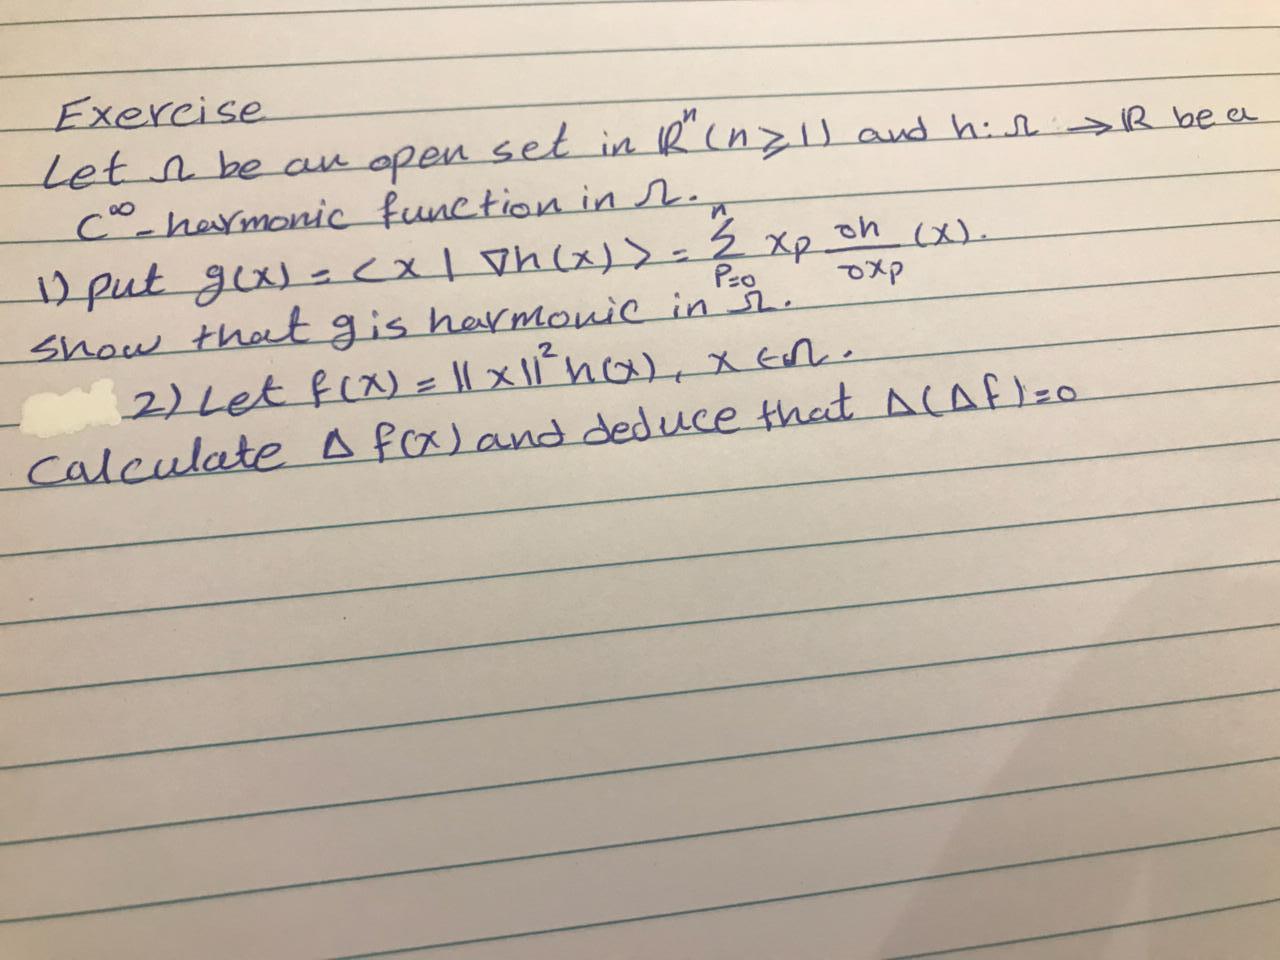 Exercise
Let Ω be an open set in ℝⁿ (n ≥ 1) and h: Ω → ℝ be a
C^∞ - harmonic function in Ω.
1) put g(x) = < x | ∇h(x) > = Σ_{P=0}^{n} xp ∂h/∂xp (x).
show that g is harmonic in Ω.
2) Let f(x) = ||x||² h(x), x ∈ Ω.
Calculate Δ f(x) and deduce that Δ(Δf) = 0